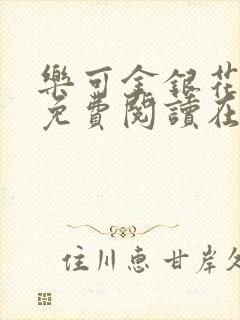 樂可金銀花
免費閱讀在
住川惠甘岸久